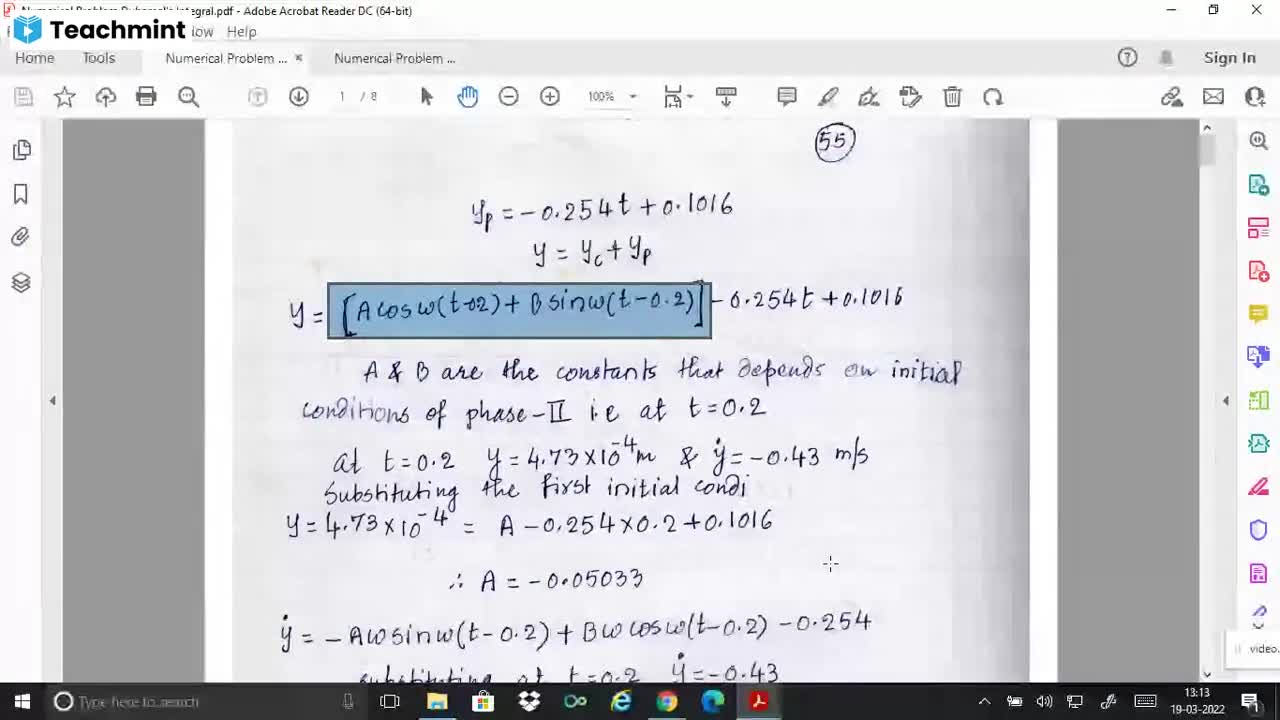 Integral.pdf - Adobe Acrobat Reader DC (64-bit)
Teachmint
Help
Home Tools Numerical Problem ... × Numerical Problem ... Sign In
1 / 8 100%
55
yₚ = -0.254t + 0.1016
y = y꜀ + yₚ
y = [A cosω(t-02) + B sinω(t-0.2)] - 0.254t + 0.1016
A & B are the constants that depends on initial
conditions of phase-II i.e at t=0.2
at t=0.2 y = 4.73×10⁻⁴m & ẏ = -0.43 m/s
Substituting the first initial condi
y = 4.73×10⁻⁴ = A - 0.254×0.2 + 0.1016
∴ A = -0.05033
ẏ = -Aω sinω(t-0.2) + Bω cosω(t-0.2) - 0.254
substituting at t=0.2 ẏ = -0.43
video.
Type here to search
13:13
19-03-2022
1